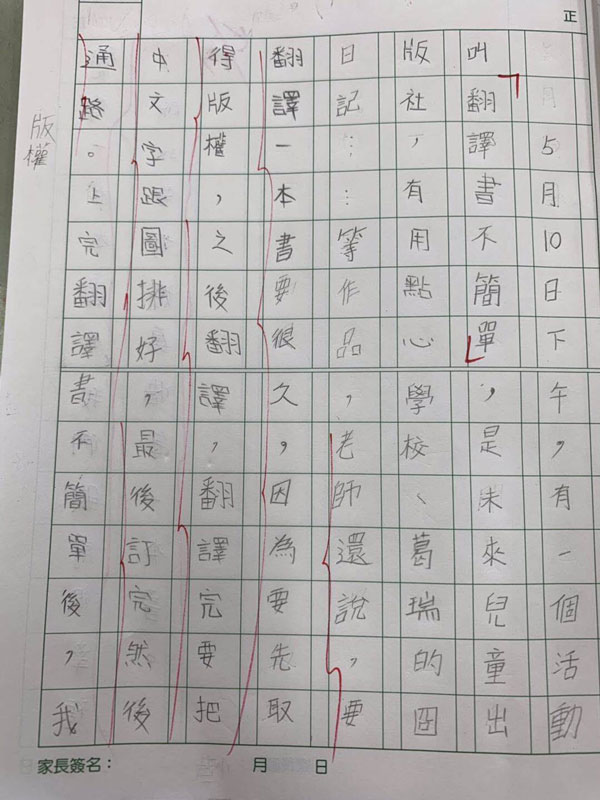 正
5月10日下午，有一個活動
叫「翻譯書不簡單」，是未來兒童出
版社，有用點心學校、葛瑞的囧
日記……等作品，老師還說，要
翻譯一本書要很久，因為要先取
得版權，之後翻譯，翻譯完要把
中文字跟圖排好，最後訂完然後
通路。上完翻譯書不簡單後，我
版權
家長簽名： 月 日